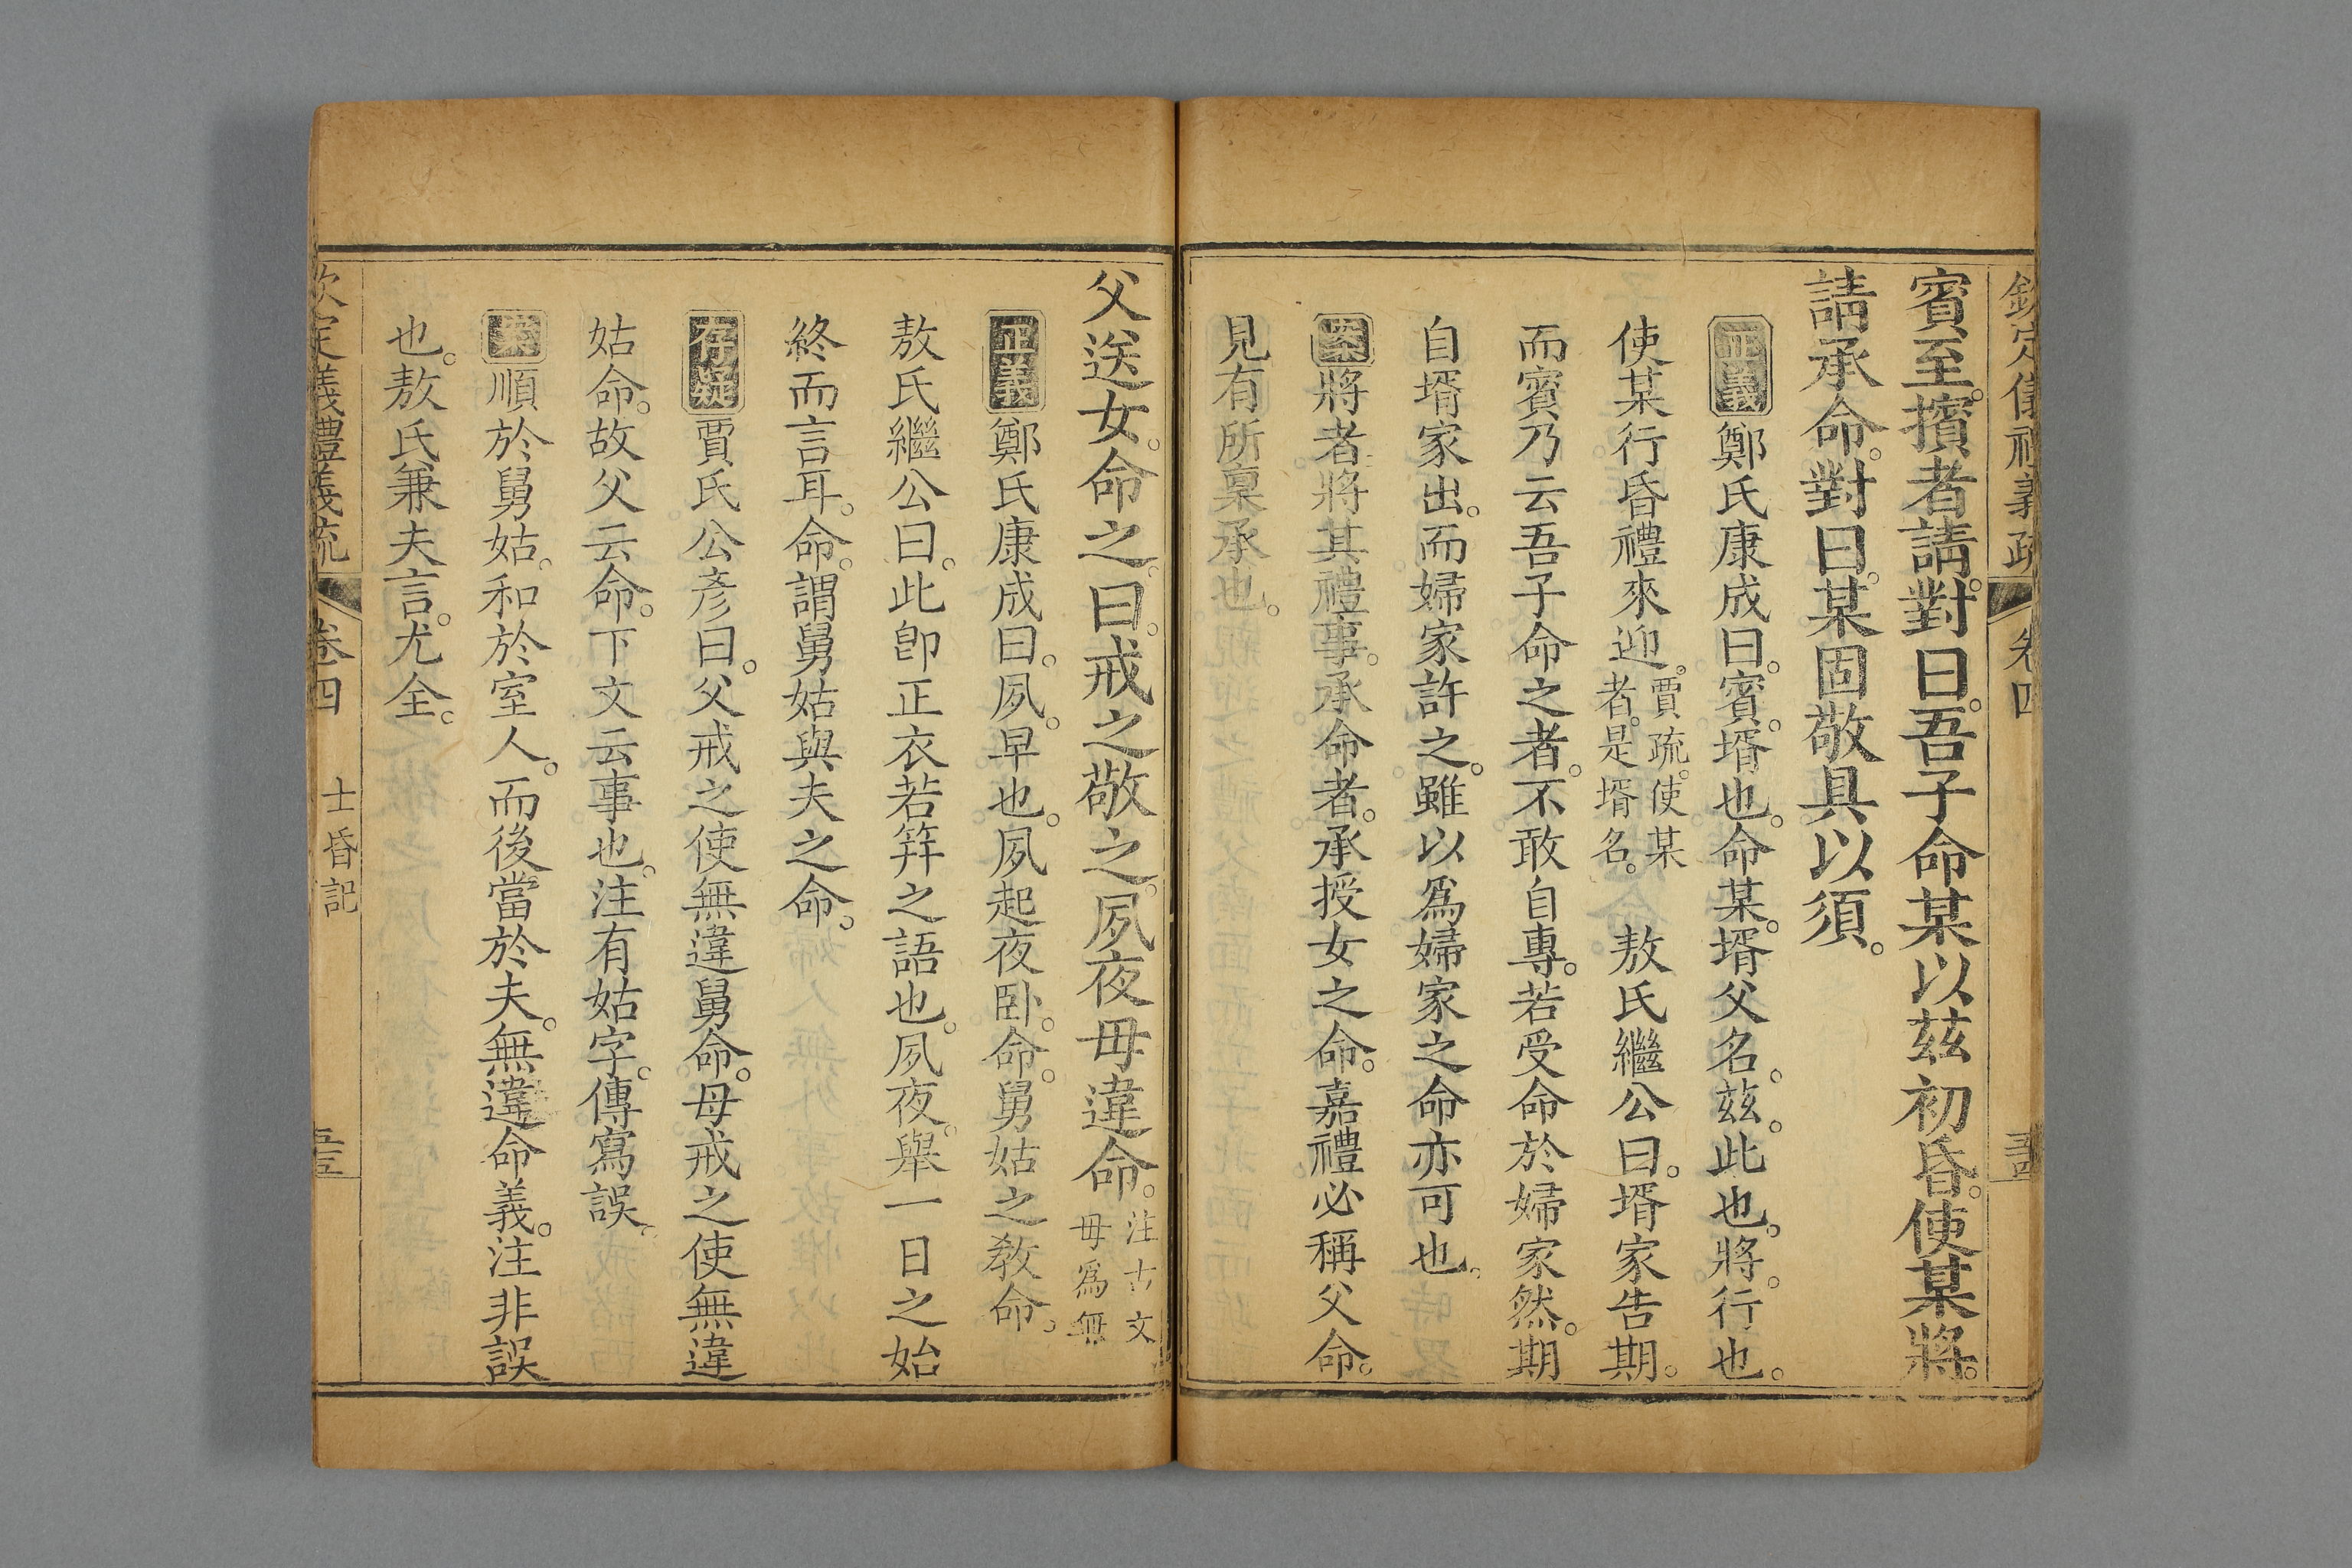 欽定儀禮義疏 卷四
賓至。擯者請。對曰。吾子命某以茲初昏。使某將。
請承命。對曰。某固敬具以須。
正義鄭氏康成曰。賓。壻也。命某。壻父名。茲。此也。將。行也。
使某行昏禮來迎。賈疏。使某者。是壻名。 敖氏繼公曰。壻家告期。
而賓乃云吾子命之者。不敢自專。若受命於婦家然。期
自壻家出。而婦家許之。雖以爲婦家之命亦可也。
案將者將其禮事。承命者。承授女之命。嘉禮必稱父命。
見有所稟承也。
父送女。命之。曰。戒之敬之。夙夜毋違命。注古文毋爲無
正義鄭氏康成曰。夙。早也。夙起夜卧。命。舅姑之教命。
敖氏繼公曰。此卽正衣若笄之語也。夙夜。舉一日之始
終而言耳。命。謂舅姑與夫之命。
存疑賈氏公彥曰。父戒之使無違舅命。母戒之使無違
姑命。故父云命。下文云事也。注有姑字。傳寫誤。
案順於舅姑。和於室人。而後當於夫。無違命義。注非誤
也。敖氏兼夫言。尤全。
欽定義禮義疏 卷四 士昏記